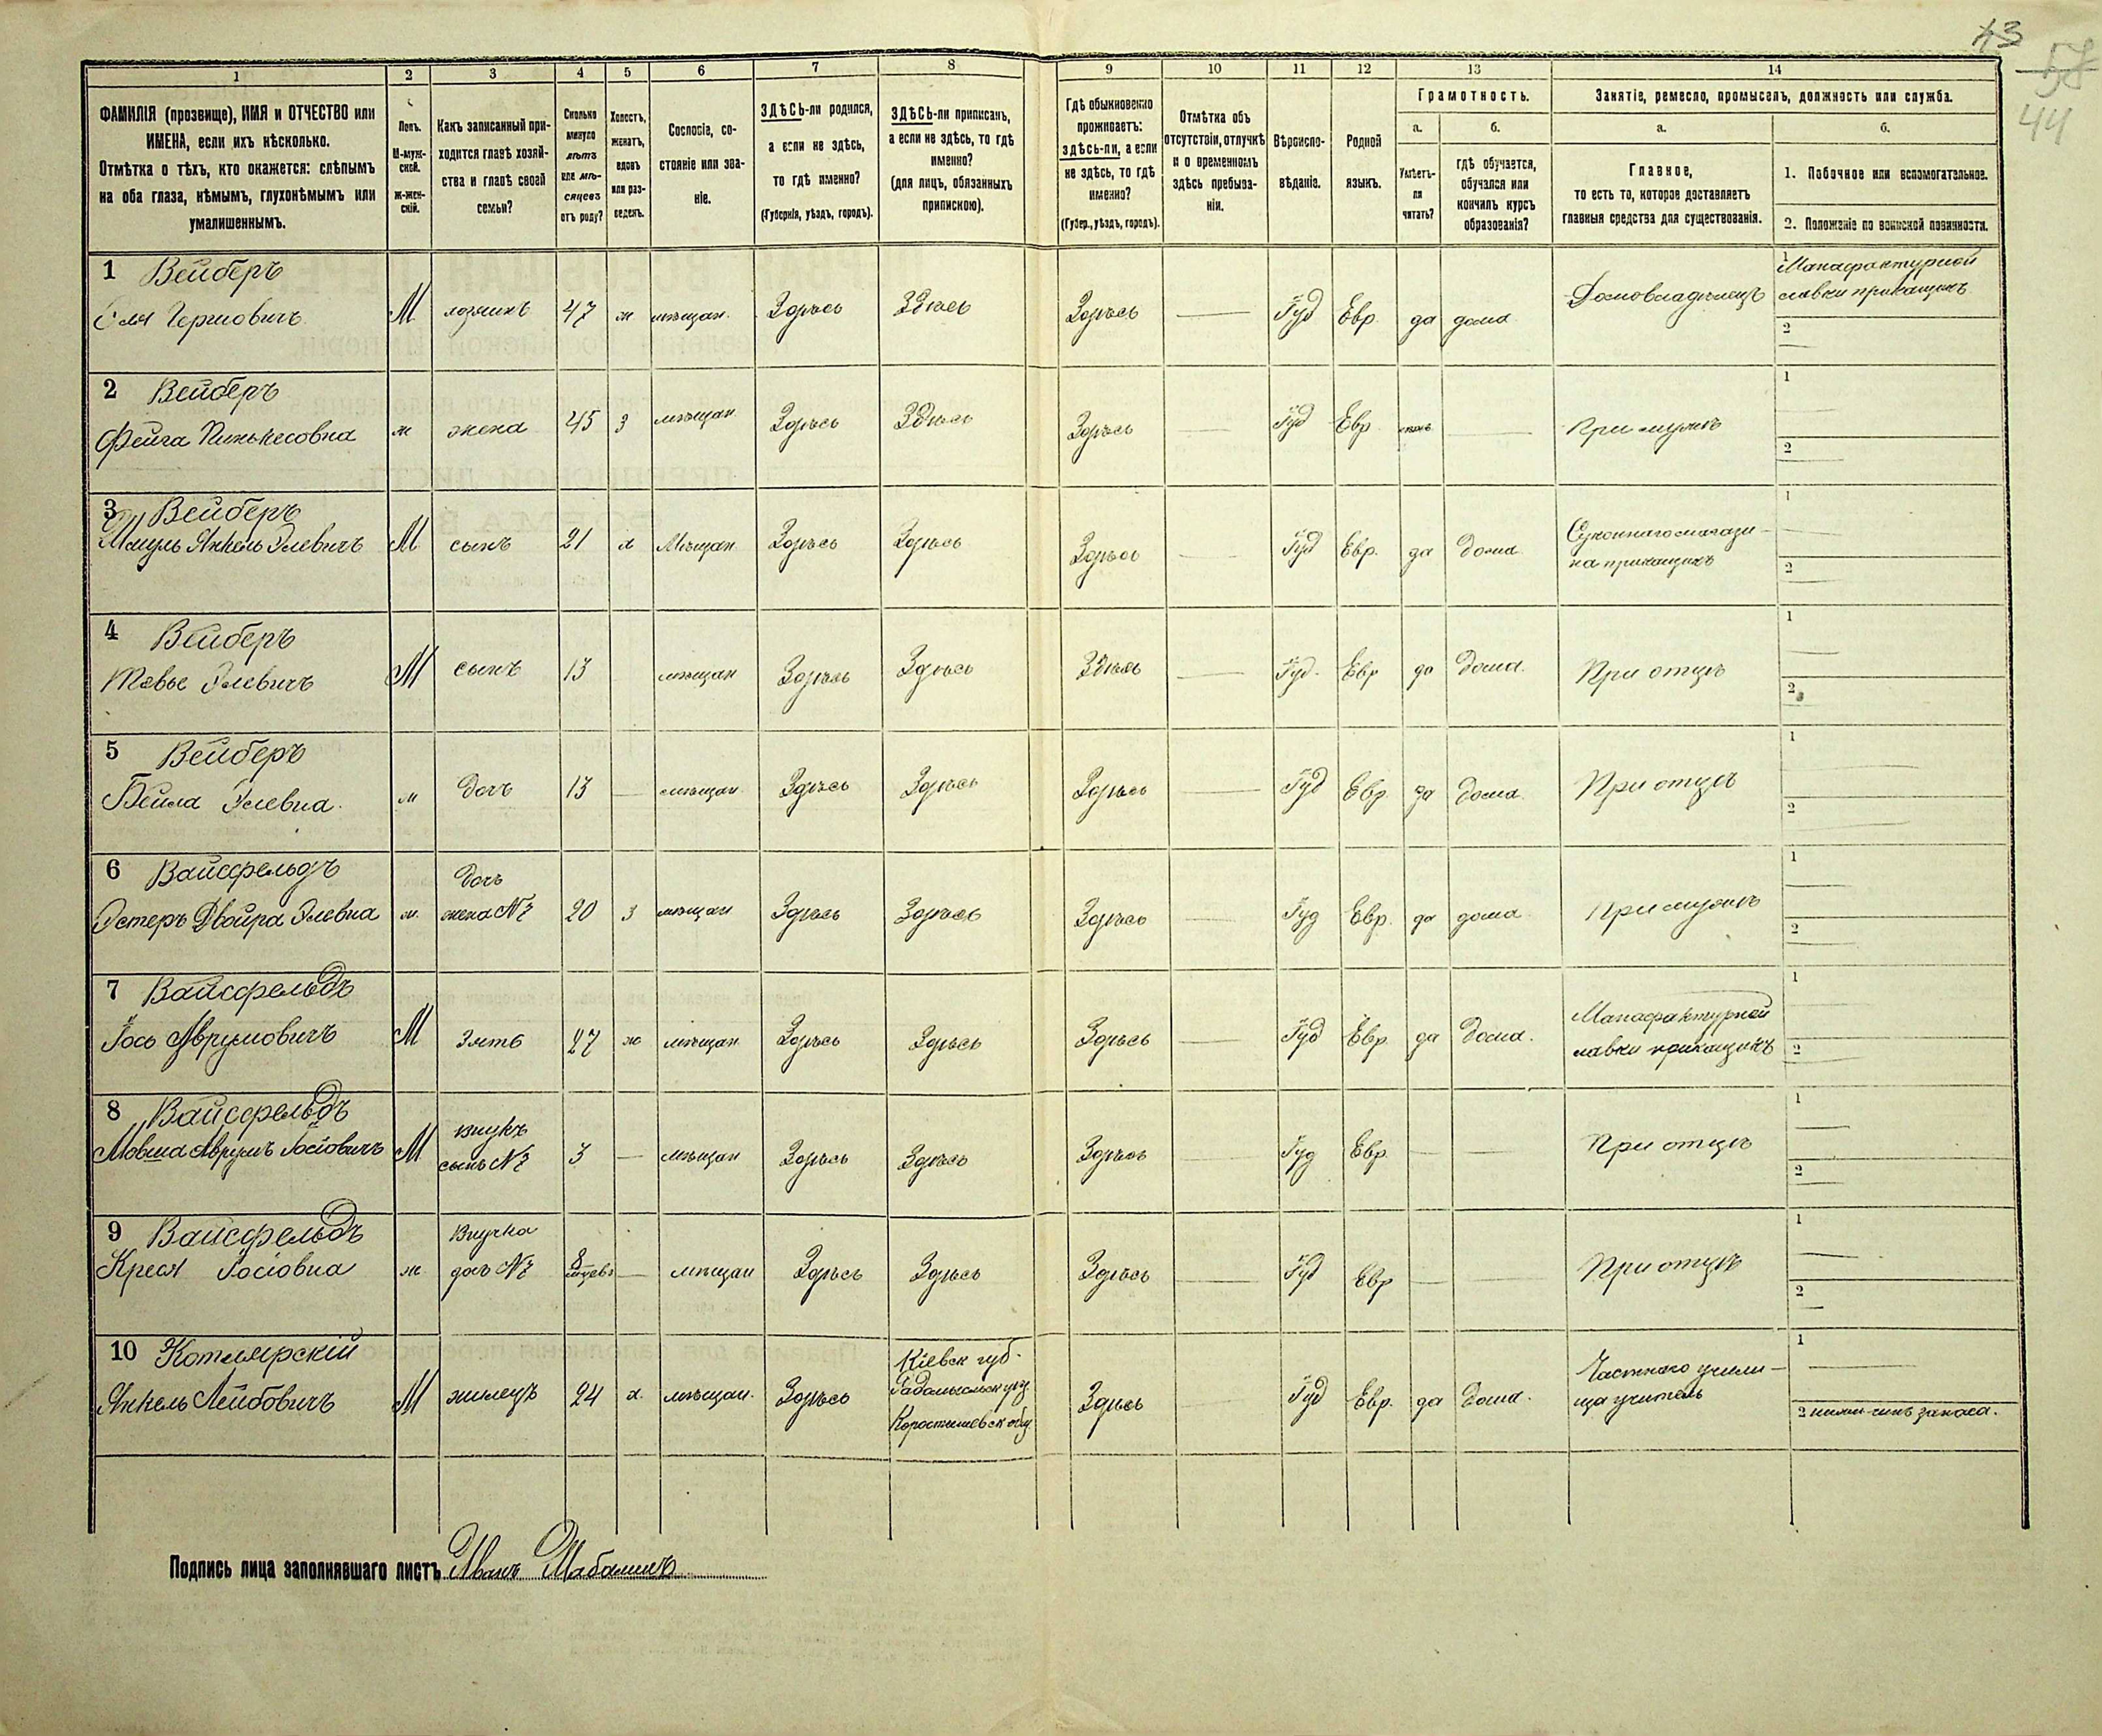 43
57
44
1 2 3 4 5 6 7 8 9 10 11 12 13 14
ФАМИЛІЯ (прозвище), ИМЯ и ОТЧЕСТВО или ИМЕНА, если ихъ нѣсколько.
Отмѣтка о тѣхъ, кто окажется: слѣпымъ на оба глаза, нѣмымъ, глухонѣмымъ или умалишеннымъ.
Полъ.
М-муж-
ской.
ж-жен-
скій.
Какъ записанный при-
ходится главѣ хозяй-
ства и главѣ своей
семьи?
Сколько
минуло
лѣтъ
или мѣ-
сяцевъ
отъ роду?
Холостъ,
женатъ,
вдовъ
или раз-
веденъ.
Сословіе, со-
стояніе или зва-
ніе.
ЗДѢСЬ-ли родился,
а если не здѣсь,
то гдѣ именно?
(Губернія, уѣздъ, городъ).
ЗДѢСЬ-ли приписанъ,
а если не здѣсь, то гдѣ
именно?
(для лицъ, обязанныхъ
припискою).
Гдѣ обыкновенно
проживаетъ:
здѣсь-ли, а если
не здѣсь, то гдѣ
именно?
(Губер., уѣздъ, городъ).
Отмѣтка объ
отсутствіи, отлучкѣ
и о временномъ
здѣсь пребыва-
ніи.
Вѣроиспо-
вѣданіе.
Родной
языкъ.
Грамотность.
а. б.
Умѣетъ-
ли
читать?
гдѣ обучается,
обучался или
кончилъ курсъ
образованія?
Занятіе, ремесло, промыселъ, должность или служба.
а. б.
Главное,
то есть то, которое доставляетъ
главныя средства для существованія.
1. Побочное или вспомогательное.
2. Положеніе по воинской повинности.
1 Вейберъ
Эля Гершовичъ М хозяинъ 47 ж мѣщан. Здѣсь Здѣсь Здѣсь — Іуд Евр. да дома Домовладѣлецъ
1 Манафактурной
лавки прикащикъ
2 —
2 Вейберъ
Фейга Пинькесовна ж жена 45 з мѣщан Здѣсь Здѣсь Здѣсь — Іуд Евр. — При мужѣ
1 —
2 —
3 Вейберъ
Шмуль Янкель Элевичъ М сынъ 21 х Мѣщан Здѣсь Здѣсь Здѣсь — Іуд Евр. да дома
Суконнаго магази-
на прикащикъ
1 —
2 —
4 Вейберъ
Тевье Элевичъ М сынъ 13 мѣщан Здѣсь Здѣсь Здѣсь — Іуд. Евр да дома. При отцѣ
1 —
2 —
5 Вейберъ
Бейла Элевна. ж дочь 13 — мѣщан Здѣсь Здѣсь Здѣсь — Іуд Евр. да дома. При отцѣ
1 —
2 —
6 Вайсфельдъ
Эстеръ Двойра Элевна ж.
дочь
жена №7 20 з мѣщан Здѣсь Здѣсь Здѣсь — Іуд Евр. да дома При мужѣ
1 —
2 —
7 Вайсфельдъ
Іось Аврумовичъ М Зять 27 ж мѣщан Здѣсь Здѣсь Здѣсь — Іуд Евр. да дома.
Манафактурной
лавки прикащикъ
1 —
2 —
8 Вайсфельдъ
Мовша Аврумъ Іосіовичъ М
внукъ
сынъ №7 3 — мѣщан Здѣсь Здѣсь Здѣсь — Іуд Евр. — — При отцѣ
1 —
2 —
9 Вайсфельдъ
Крейся Іосіовна ж
Внучка
дочь №7 — мѣщан Здѣсь Здѣсь Здѣсь — Іуд Евр — — При отцѣ
1 —
2 —
10 Котлярскій
Янкель Лейбовичъ М жилецъ 24 х. мѣщан. Здѣсь
Кіевск губ.
Радомысльск уѣз
Коростышевск общ
Здѣсь — Іуд Евр. да дома.
Частнаго учили-
ща учитель
1 —
2 нижн. чинъ запаса.
Подпись лица заполнявшаго листъ Иванъ